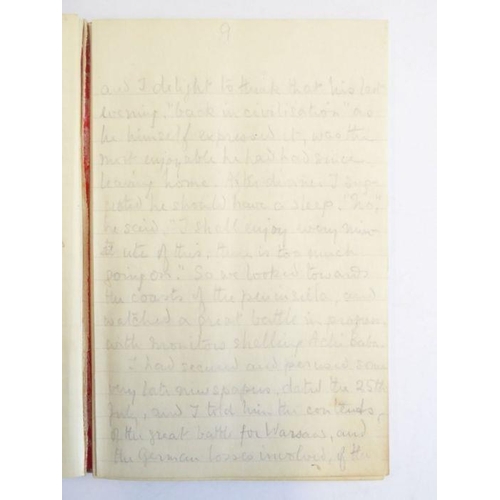 9
and I delight to think that his last
evening, "back in civilisation" as
he himself expressed it, was the
most enjoyable he had had since
leaving home. After dinner I sugg-
ested he should have a sleep. "No,"
he said, "I shall enjoy every min-
ute of this, there is too much
going on." So we looked towards
the coasts of the peninsula, and
watched a great battle in progress,
with monitors shelling Achi Baba.
I had secured and perused some
very late newspapers, dated the 25th
July, and I told him the contents,
of the great battle for Warsaw, and
the German losses involved, of the